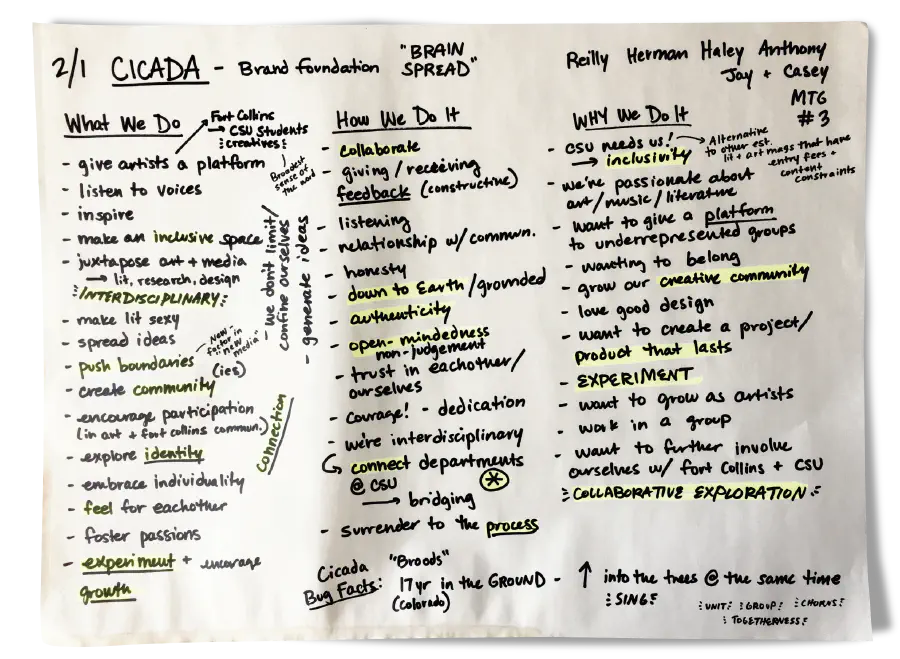 2/1 CICADA - Brand Foundation "BRAIN SPREAD"
Reilly Herman Haley Anthony
Jay + Casey
MTG
#3
What We Do
Fort Collins
→ CSU Students
creatives
Broadest
sense of
the word
- give artists a platform
- listen to voices
- inspire
- make an inclusive space
- juxtapose art + media
→ lit, research, design
INTERDISCIPLINARY
- make lit sexy
- spread ideas
- push boundaries
(ies)
New -
factor in
"new
media"
- create community
- encourage participation
(in art + fort collins commun.)
- explore identity
- embrace individuality
- feel for eachother
- foster passions
- experiment + encourage
growth
connection
- we don't limit/
confine ourselves
- generate ideas
How We Do It
- collaborate
- giving / receiving
feedback (constructive)
- listening
- relationship w/ commun.
- honesty
- down to Earth / grounded
- authenticity
- open-mindedness
non-judgement
- trust in eachother/
ourselves
- courage! - dedication
- we're interdisciplinary
↪ connect departments
@ CSU *
→ bridging
- surrender to the process
WHY We Do It
- CSU needs us!
→ inclusivity
→ Alternative
to other est.
lit + art mags that have
entry fees +
content
constraints
- we're passionate about
art/music/literature
- want to give a platform
to underrepresented groups
- wanting to belong
- grow our creative community
- love good design
- want to create a project/
product that lasts
- EXPERIMENT
- want to grow as artists
- work in a group
- want to further involve
ourselves w/ fort Collins + CSU
COLLABORATIVE EXPLORATION
Cicada
Bug Facts:
"Broods"
17yr in the GROUND -
(colorado)
↑ into the trees @ the same time
SING
UNIT GROUP CHORUS
TOGETHERNESS